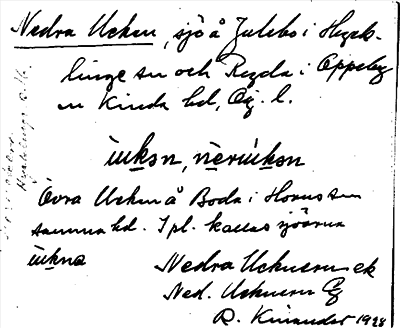 Nedra Ucken, sjö å Julebo i Hyck-
linge sn och Rugda i Oppeby
sn Kinda hd, Ög. l.
ùukən, nèrúukən
Övra Ucken å Boda i Horns sn
samma hd. I pl. kallas sjöarna
ùukna
Nedra Uckuern ek
Ned. Uckuern G
R. Kinander 1928